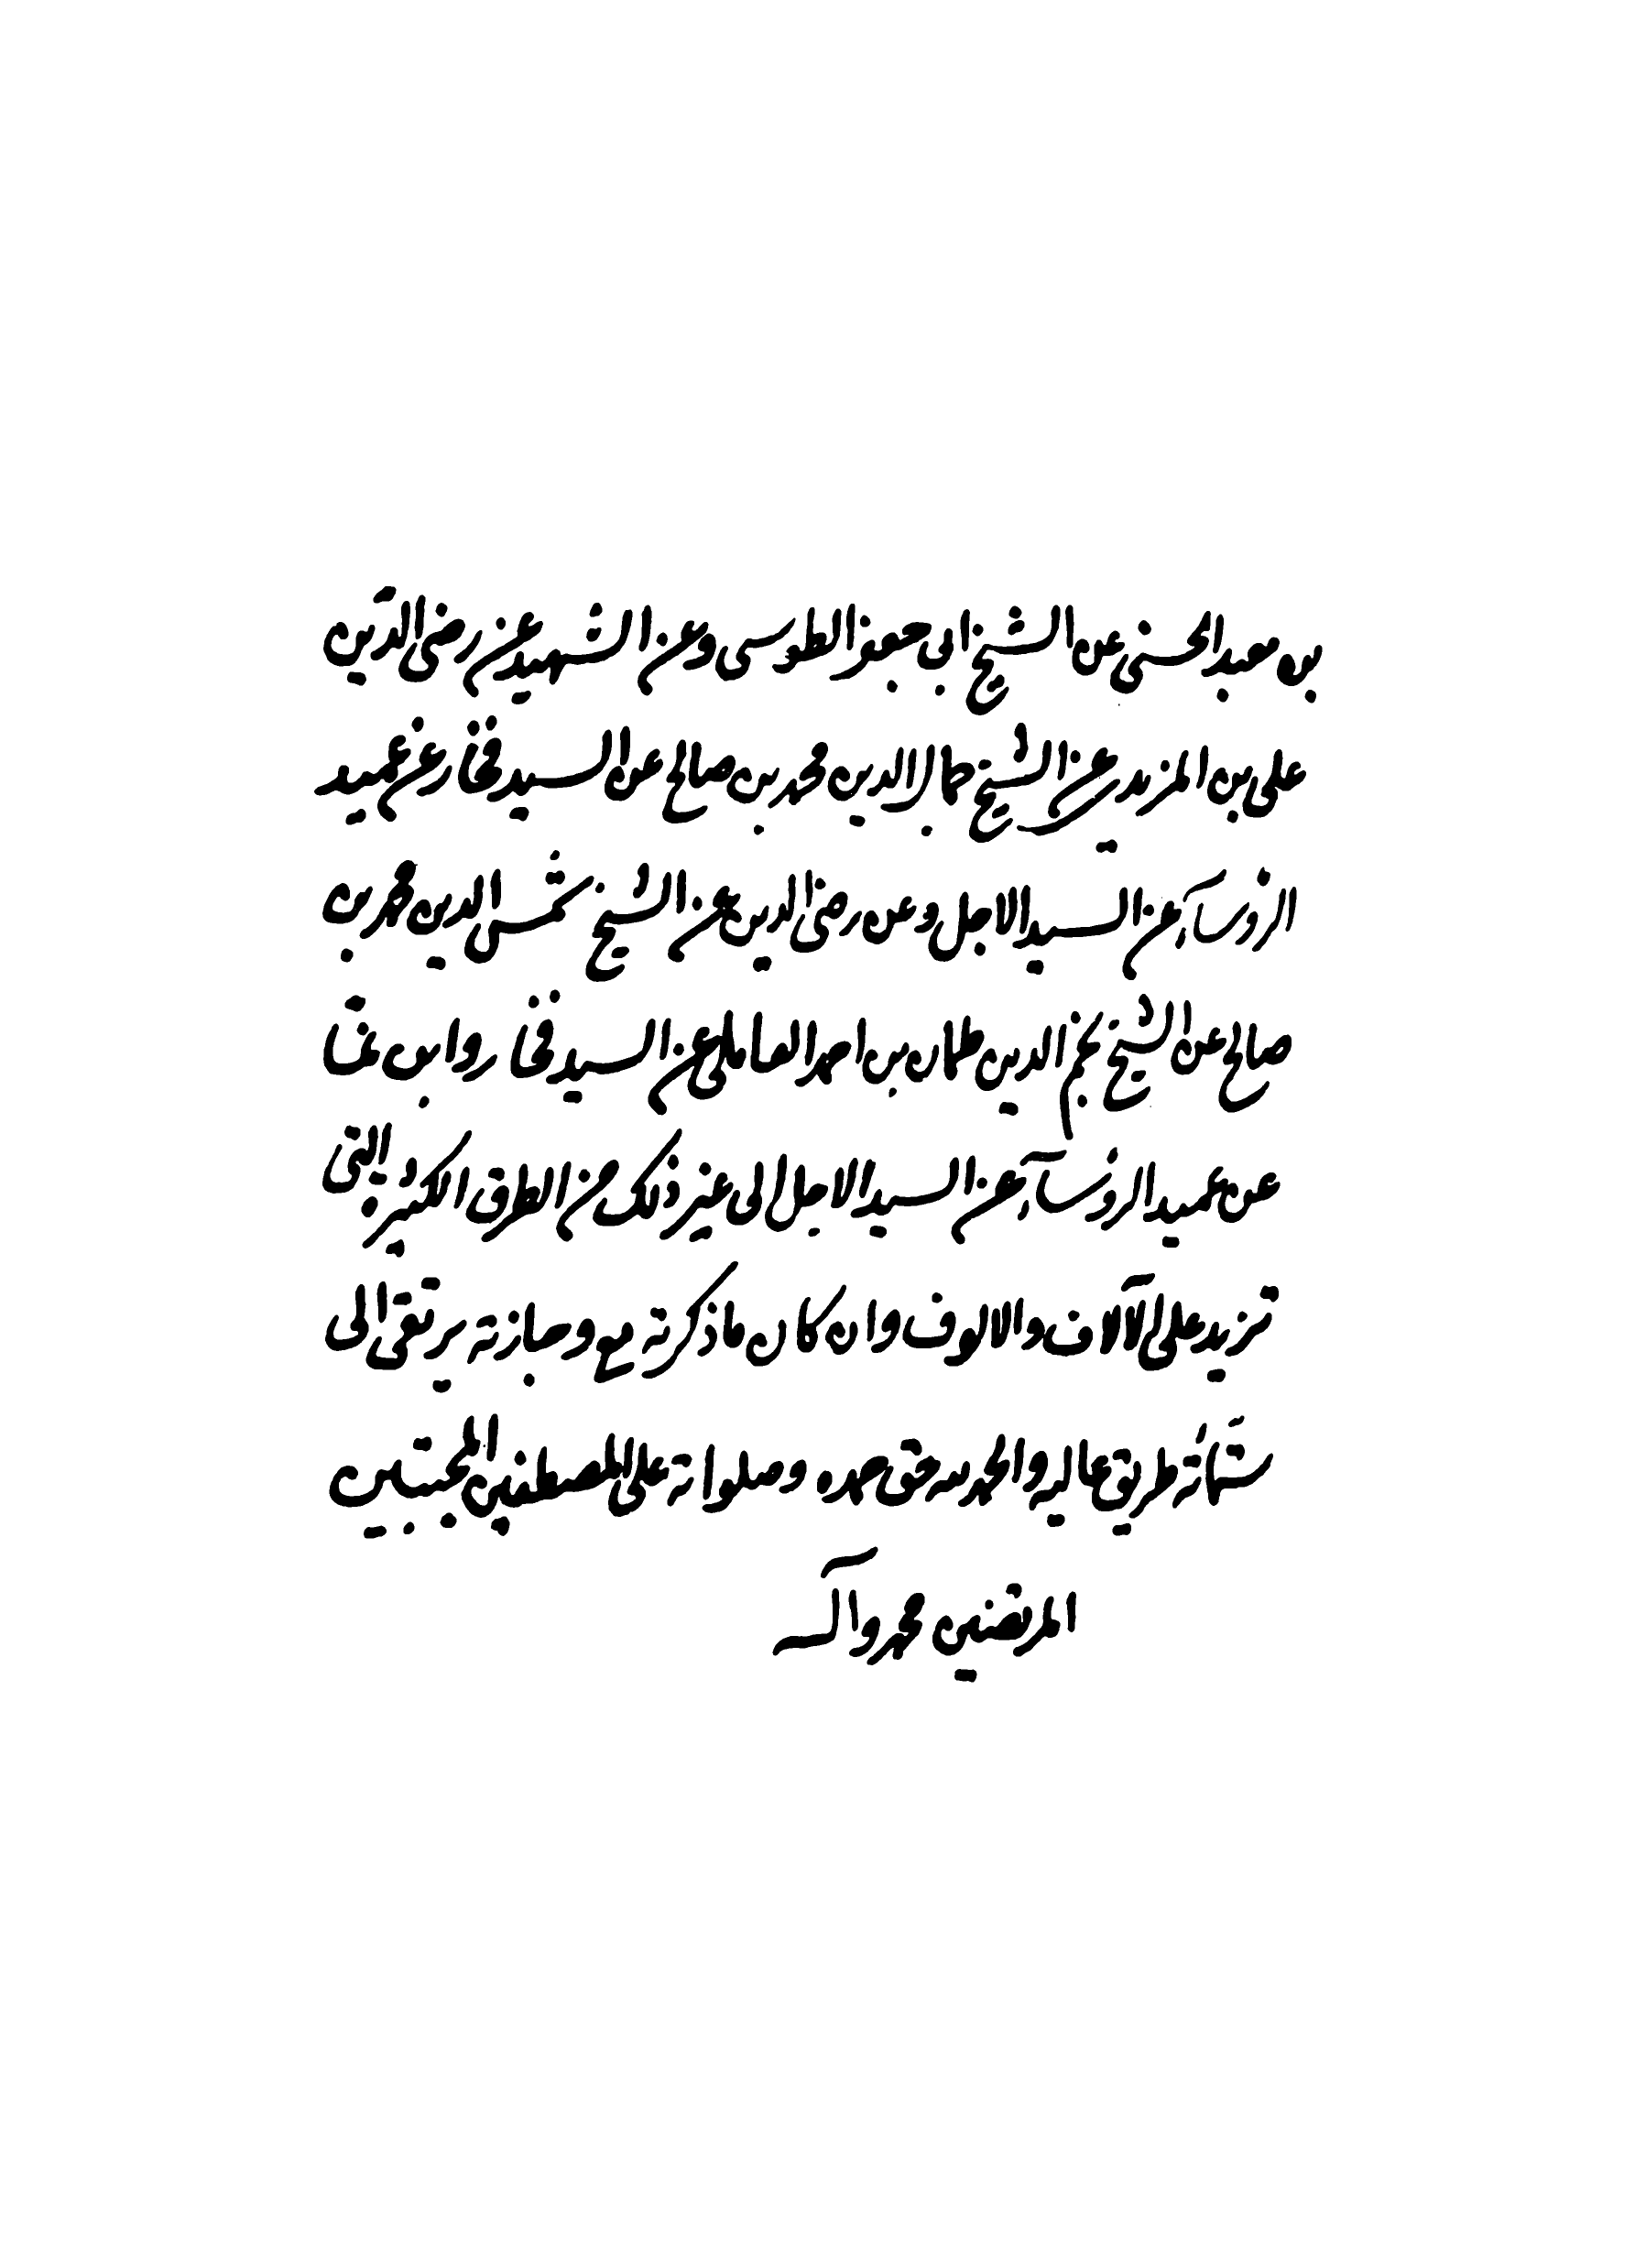 بن معبد الحسنی عن الشیخ ابی جعفر الطوسی و عن الشهید عن رضی الدّین
علی بن المزیدی عن الشیخ جمال الدین محمد بن صالح عن السید فخار عن عمید
الرؤسآء عن السید الاجل و عن رضی الدین عن الشیخ شمس الدین محمد بن
صالح عن الشیخ نجم الدین طمان بن احمد العاملی عن السید فخار و ابن نما
عن عمید الرؤسآء عن السید الاجل الی غیر ذلک من الطرق الکثیرة التی
تزید علی الآلاف والالوف وان کان ما ذکرته مع وجازته یرتقی الی
ستمائة طریق عالیه والحمد لله حق حمده وصلواته علی المصطفین المجتبین
المرتضین محمد وآله